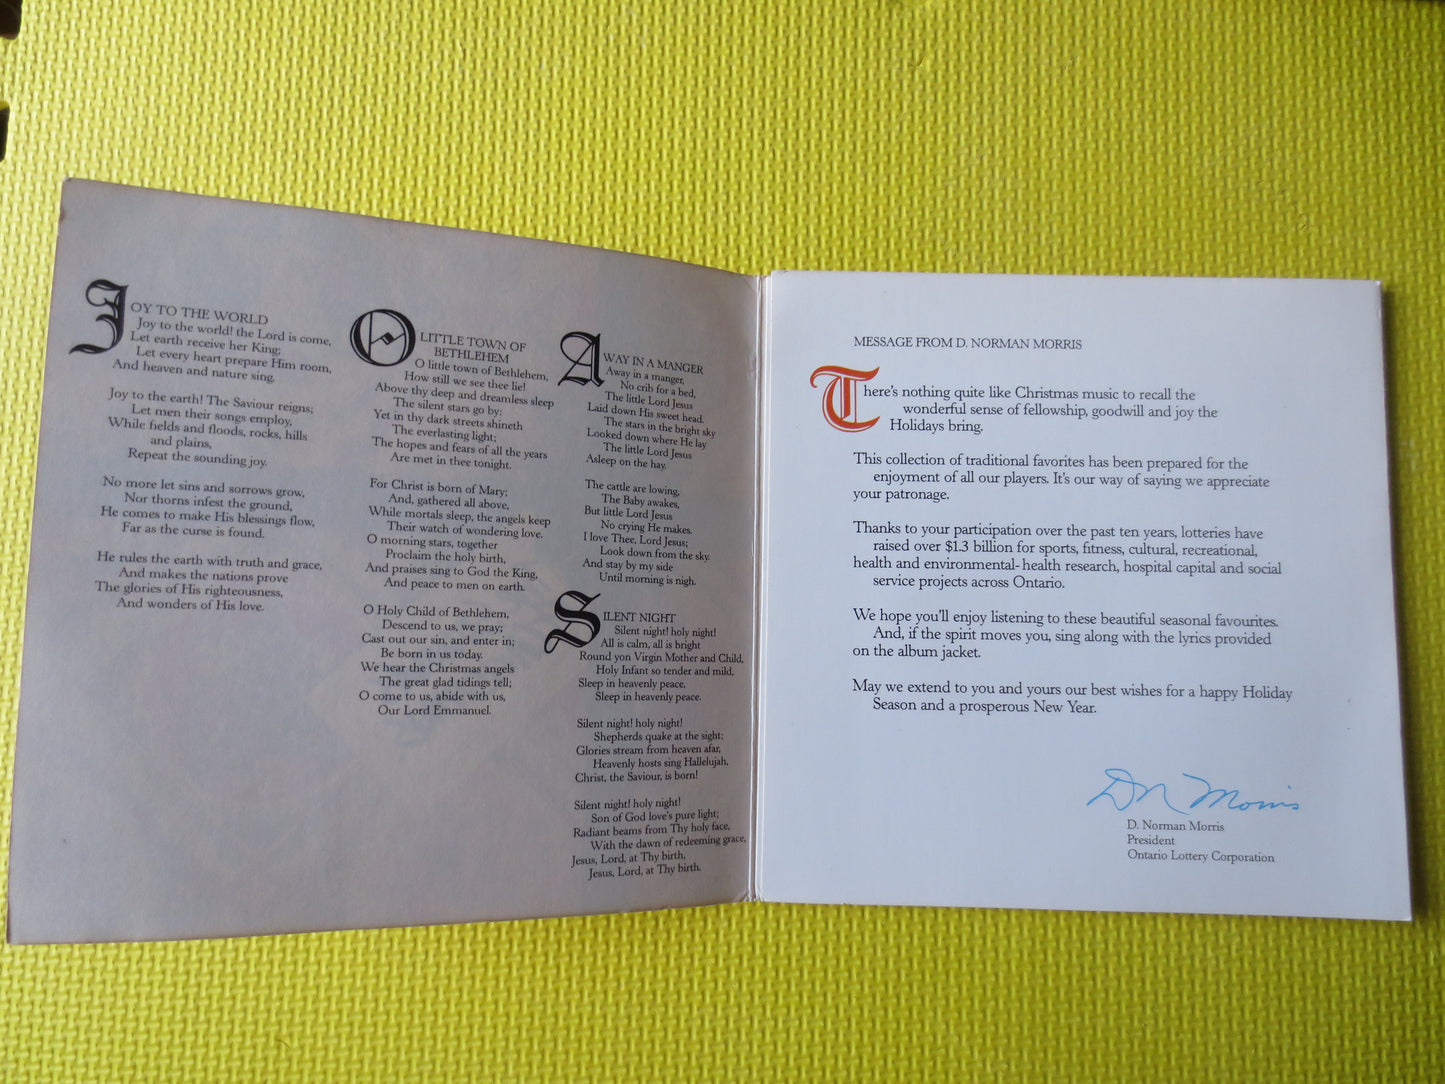 JOY TO THE WORLD
Joy to the world! the Lord is come,
Let earth receive her King;
Let every heart prepare Him room,
And heaven and nature sing.
Joy to the earth! The Saviour reigns;
Let men their songs employ,
While fields and floods, rocks, hills
and plains,
Repeat the sounding joy.
No more let sins and sorrows grow,
Nor thorns infest the ground,
He comes to make His blessings flow,
Far as the curse is found.
He rules the earth with truth and grace,
And makes the nations prove
The glories of His righteousness,
And wonders of His love.
O LITTLE TOWN OF
BETHLEHEM
O little town of Bethlehem,
How still we see thee lie!
Above thy deep and dreamless sleep
The silent stars go by:
Yet in thy dark streets shineth
The everlasting light;
The hopes and fears of all the years
Are met in thee tonight.
For Christ is born of Mary;
And, gathered all above,
While mortals sleep, the angels keep
Their watch of wondering love.
O morning stars, together
Proclaim the holy birth,
And praises sing to God the King,
And peace to men on earth.
O Holy Child of Bethlehem,
Descend to us, we pray;
Cast out our sin, and enter in;
Be born in us today.
We hear the Christmas angels
The great glad tidings tell;
O come to us, abide with us,
Our Lord Emmanuel.
AWAY IN A MANGER
Away in a manger,
No crib for a bed,
The little Lord Jesus
Laid down His sweet head.
The stars in the bright sky
Looked down where He lay
The little Lord Jesus
Asleep on the hay.
The cattle are lowing,
The Baby awakes,
But little Lord Jesus
No crying He makes.
I love Thee, Lord Jesus;
Look down from the sky.
And stay by my side
Until morning is nigh.
SILENT NIGHT
Silent night! holy night!
All is calm, all is bright
Round yon Virgin Mother and Child,
Holy Infant so tender and mild,
Sleep in heavenly peace,
Sleep in heavenly peace.
Silent night! holy night!
Shepherds quake at the sight;
Glories stream from heaven afar,
Heavenly hosts sing Hallelujah,
Christ, the Saviour, is born!
Silent night! holy night!
Son of God love's pure light;
Radiant beams from Thy holy face,
With the dawn of redeeming grace,
Jesus, Lord, at Thy birth,
Jesus, Lord, at Thy birth.
MESSAGE FROM D. NORMAN MORRIS
There's nothing quite like Christmas music to recall the
wonderful sense of fellowship, goodwill and joy the
Holidays bring.
This collection of traditional favorites has been prepared for the
enjoyment of all our players. It's our way of saying we appreciate
your patronage.
Thanks to your participation over the past ten years, lotteries have
raised over $1.3 billion for sports, fitness, cultural, recreational,
health and environmental-health research, hospital capital and social
service projects across Ontario.
We hope you'll enjoy listening to these beautiful seasonal favourites.
And, if the spirit moves you, sing along with the lyrics provided
on the album jacket.
May we extend to you and yours our best wishes for a happy Holiday
Season and a prosperous New Year.
DN Morris
D. Norman Morris
President
Ontario Lottery Corporation